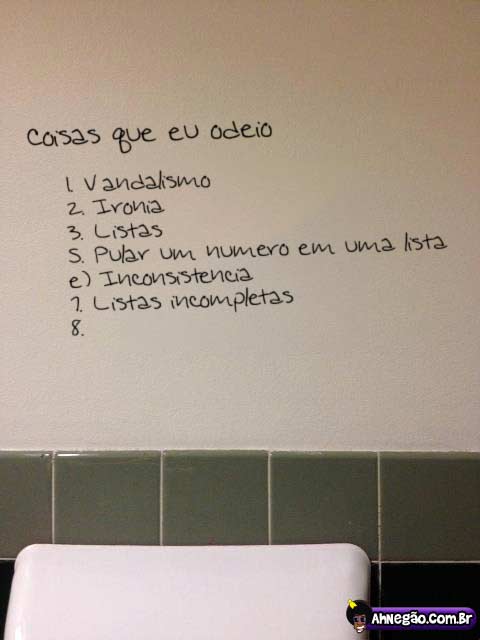 Coisas que eu odeio
1. Vandalismo
2. Ironia
3. Listas
5. Pular um numero em uma lista
e) Inconsistencia
7. Listas incompletas
8.
Ahnegão.Com.Br